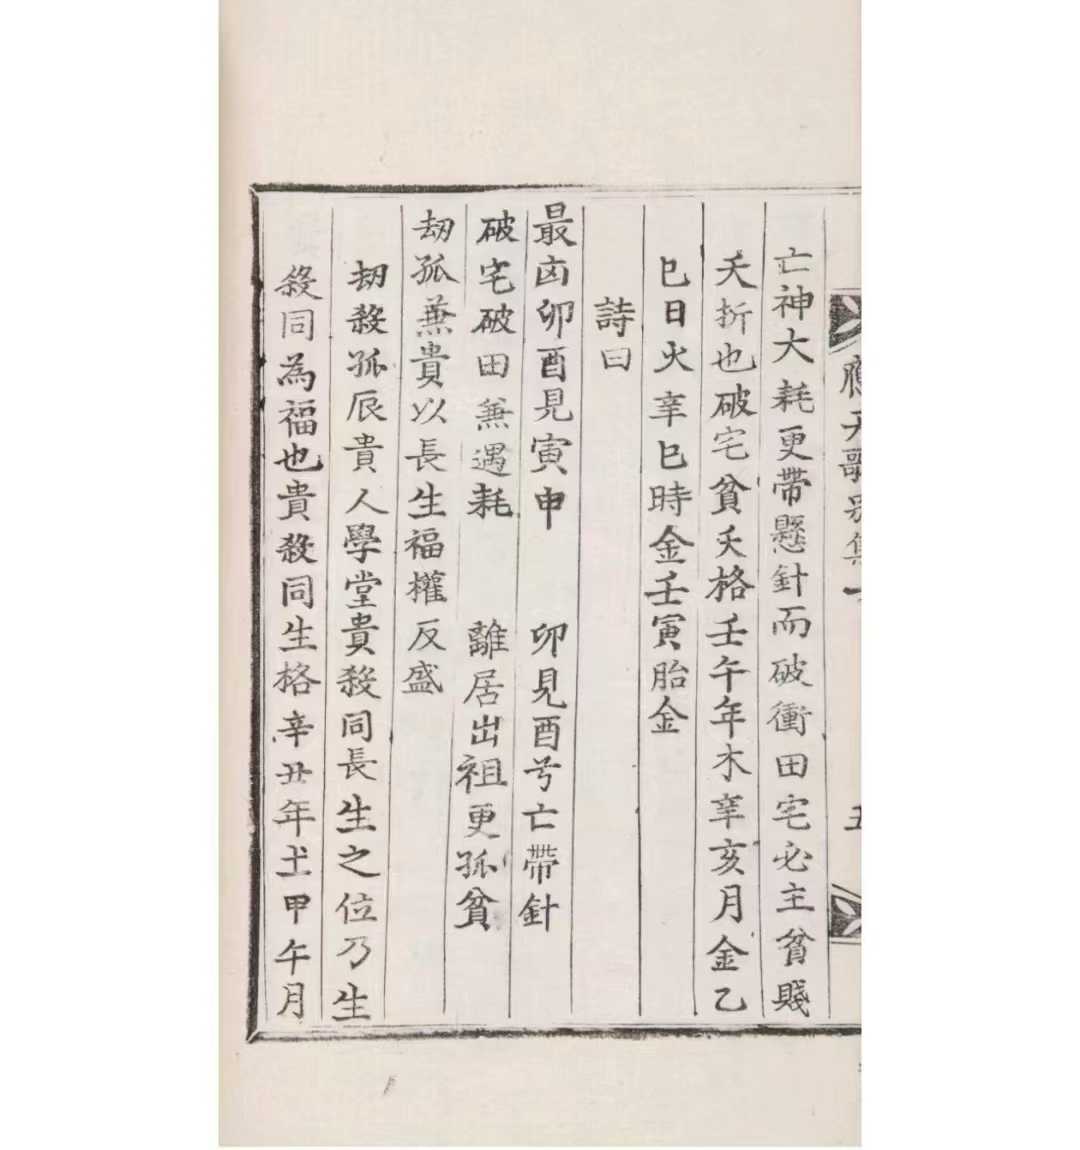 亡神大耗更帶懸針而破衝田宅必主貧賤
夭折也破宅貧夭格壬午年木辛亥月金乙
巳日火辛巳時金壬寅胎金
詩曰
最凶卯酉見寅申 卯見酉兮亡帶針
破宅破田兼遇耗 離居出祖更孤貧
劫孤兼貴以長生福權反盛
劫殺孤辰貴人學堂貴殺同長生之位乃生
殺同為福也貴殺同生格辛丑年土甲午月